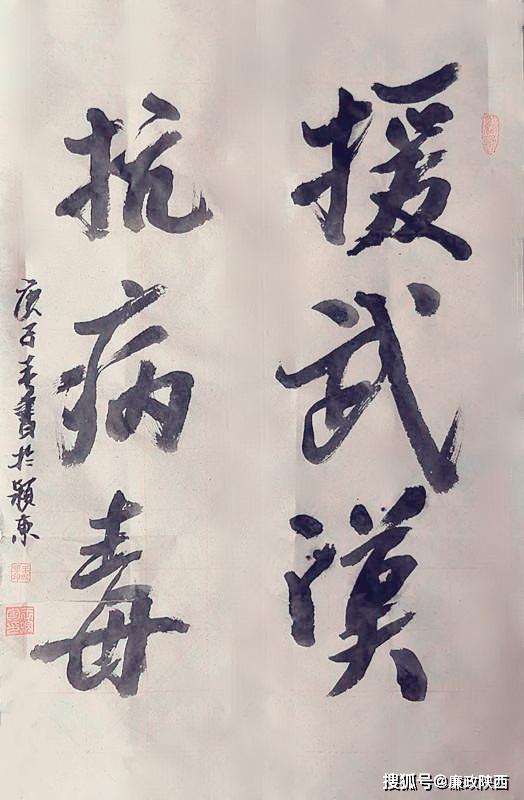 援武漢
抗病毒
庚子春書於颍東
搜狐号@廉政陕西